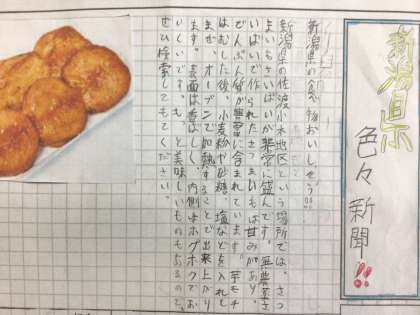 新潟県
色々新聞!!
新潟県の食べ物おいしそう!!
新潟県の佐渡小木地区という場所では、さつ
まいもさいばいが非常に盛んです。無農薬さ
いばいで作られたさつまいもは甘みがあり、
でんぷん質が豊富に含まれています。芋モチ
はむした後、小麦粉や砂糖、塩などを入れし
まぜ、オーブンで加熱することで出来上がり
ます。表面は香ばしく、内側はホクホクでお
いしいです。もっと美味しいものもあるので、
ぜひ検索してみてください。